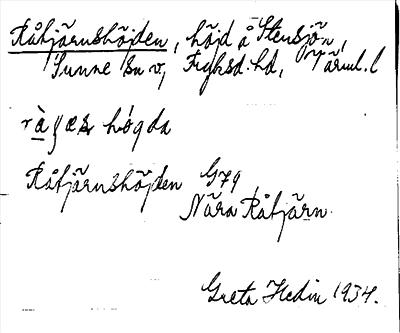 Råtjärnshöjden, höjd å Stensjön,
Sunne sn v, Fryksd. hd, Värml. l
högda
Råtjärnshöjden G79
Nära Råtjärn.
Greta Hedin 1934.